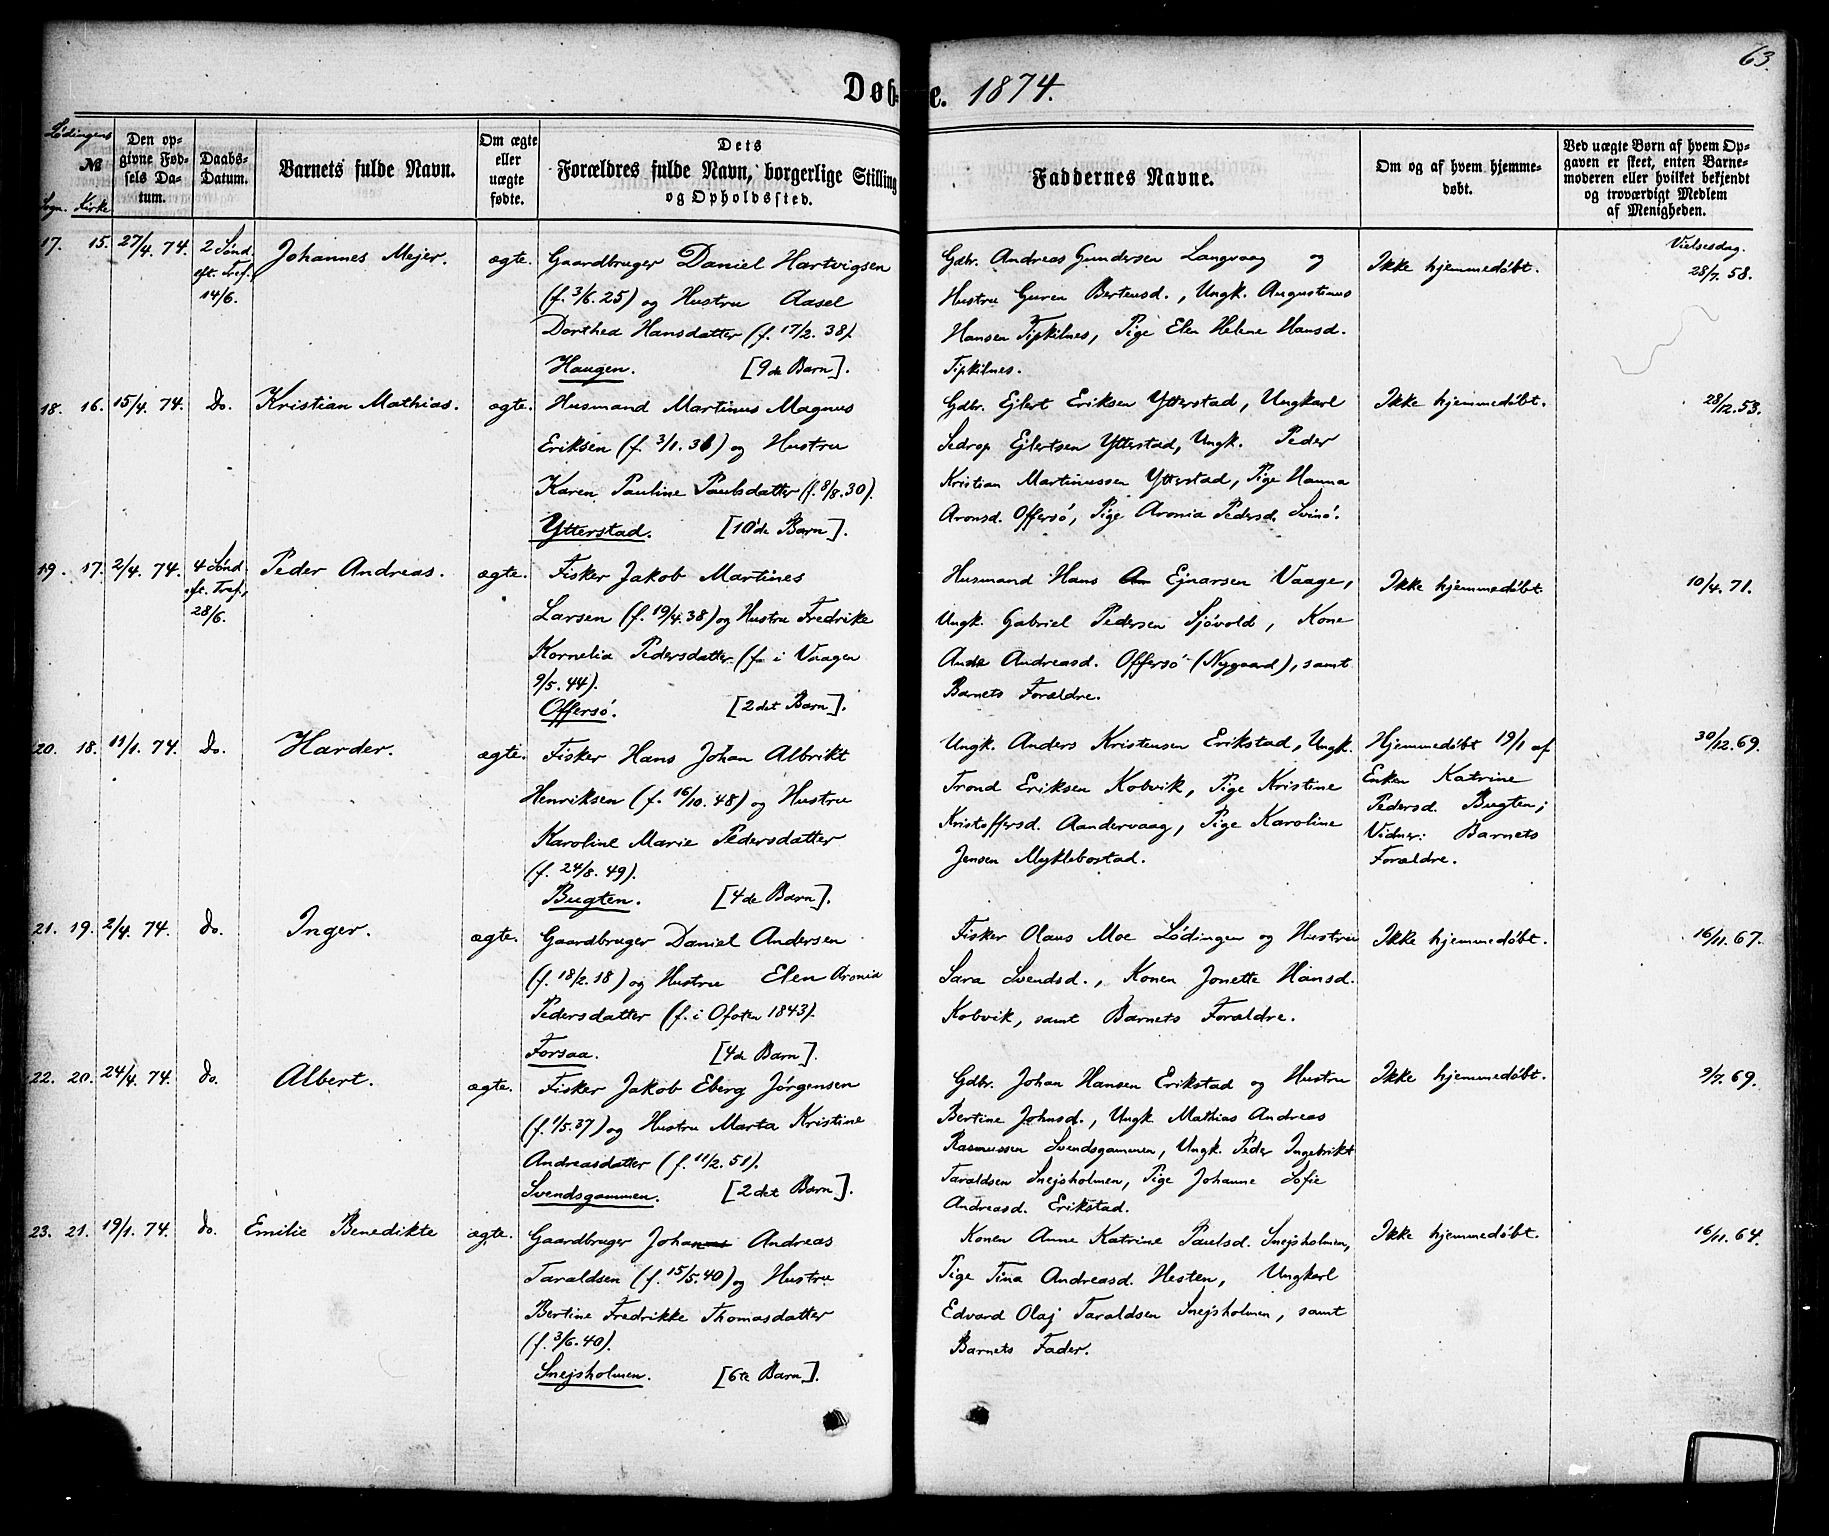 63.
Døbte. 1874.
Lødingens
№
Sogn. Kirke
Den op-
givne Fød-
sels Da-
tum.
Daabs-
Datum.
Barnets fulde Navn.
Om ægte
eller
uægte
fødte.
Dets
Forældres fulde Navn, borgerlige Stilling
og Opholdssted.
Faddernes Navne.
Om og af hvem hjemme-
døbt.
Ved uægte Børn af hvem Op-
gaven er skeet, enten Barne-
moderen eller hvilket bekjendt
og troværdigt Medlem
af Menigheden.
17. 15. 27/4. 74. 2 Sønd.
eft. Tref.
14/6.
Johannes Mejer.
ægte.
Gaardbruger Daniel Hartvigsen
(f. 3/6. 25) og Hustru Aasel
Dorthea Hansdatter (f. 17/2. 38).
Haugen. [9de Barn].
Gdbr. Andreas Gundersen Langvaag og
Hustru Guren Berteusd., Ungk. Augustinus
Hansen Tipkilnes, Pige Elen Helene Hansd.
Tipkilnes.
Ikke hjemmedøbt.
Vielsesdag.
28/7. 58.
18. 16. 15/4. 74. Do. Kristian Mathias.
ægte.
Husmand Martinus Magnus
Eriksen (f. 3/1. 31) og Hustru
Karen Pauline Paulsdatter (f. 8/8. 30).
Ytterstad. [10de Barn].
Gdbr. Ejlert Eriksen Ytterstad, Ungkarl
Sedrop Ejlertsen Ytterstad, Ungk. Peder
Kristian Martinussen Ytterstad, Pige Hanna
Aronsd. Offersø, Pige Aronia Pedersd. Svinø.
Ikke hjemmedøbt.
28/12. 53.
19. 17. 2/4. 74. 4 Sønd.
eft. Tref.
28/6.
Peder Andreas.
ægte.
Fisker Jakob Martines
Larsen (f. 19/4. 38) og Hustru Fredrike
Kornelia Pedersdatter (f. i Vaagen
9/5. 44).
Offersø. [2det Barn].
Husmand Hans An Ejnarsen Vaage,
Ungk. Gabriel Pedersen Sjøvold, Kone
Ande Andreasd. Offersø (Nygaard), samt
Barnets Forældre.
Ikke hjemmedøbt.
10/4. 71.
20. 18. 11/1. 74. Do. Harder.
ægte.
Fisker Hans Johan Albrikt
Henriksen (f. 16/10. 48) og Hustru
Karoline Marie Pedersdatter
(f. 24/8. 49).
Bugten. [4de Barn].
Ungk. Anders Kristensen Erikstad, Ungk.
Trond Eriksen Kobvik, Pige Kristine
Kristoffersd. Aandervaag, Pige Karoline
Jensen Myklebostad.
Hjemmedøbt 19/1 af
Enken Katrine
Pedersd. Bugten;
Vidner: Barnets
Forældre.
30/12. 69.
21. 19. 2/4. 74. do. Inger.
ægte.
Gaardbruger Daniel Andersen
(f. 18/2. 18) og Hustru Elen Aronia
Pedersdatter (f. i Ofoten 1843).
Forsaa. [4de Barn].
Fisker Olaus Moe Lødingen og Hustru
Sara Svendsd., Konen Jonette Hansd.
Kobvik, samt Barnets Forældre.
Ikke hjemmedøbt.
16/11. 67.
22. 20. 24/4. 74. do. Albert.
ægte.
Fisker Jakob Eberg Jørgensen
(f. 1/5. 37) og Hustru Marta Kristine
Andreasdatter (f. 11/2. 51).
Svendsgammen. [2det Barn].
Gdbr. Johan Hansen Erikstad og Hustru
Bertine Johnsd., Ungk. Mathias Andreas
Rasmussen Svendsgammen, Ungk. Peder Ingebrikt
Taraldsen Snejsholmen, Pige Johanne Sofie
Andreasd. Erikstad.
Ikke hjemmedøbt.
9/7. 69.
23. 21. 19/1. 74. do. Emilie Benedikte
ægte.
Gaardbruger Johannes Andreas
Taraldsen (f. 15/5. 40) og Hustru
Bertine Fredrikke Thomasdatter
(f. 3/6. 40).
Snejsholmen. [6te Barn].
Konen Anne Katrine Paulsd. Snejsholmen,
Pige Tina Andreasd. Hesten, Ungkarl
Edvard Olaj Taraldsen Snejsholmen, samt
Barnets Fader.
Ikke hjemmedøbt.
16/11. 64.